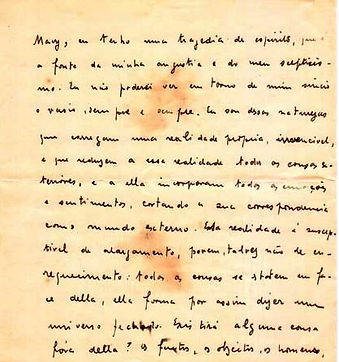 Mary, eu tenho uma tragedia de espirito, que é
a fonte da minha angustia e do meu scepticis-
mo. Eu não poderei ver em torno de mim sinão
o vasio, sempre e sempre. Eu sou dessas naturezas
que carregam uma realidade própria, irremovivel,
e que reduzem a essa realidade todas as cousas ex-
teriores, e a ella incorporam todas as emoções
e sentimentos, cortando a sua correspondencia
como mundo externo. Essa realidade é suscep-
tivel de alargamento, porem, talvez não de en-
riquecimento: todas as cousas se fa-
ce della, ella forma por assim dizer um
universo fechado. Existirá alguma cousa
fóra della? Os fructos, os objectos, os homens,